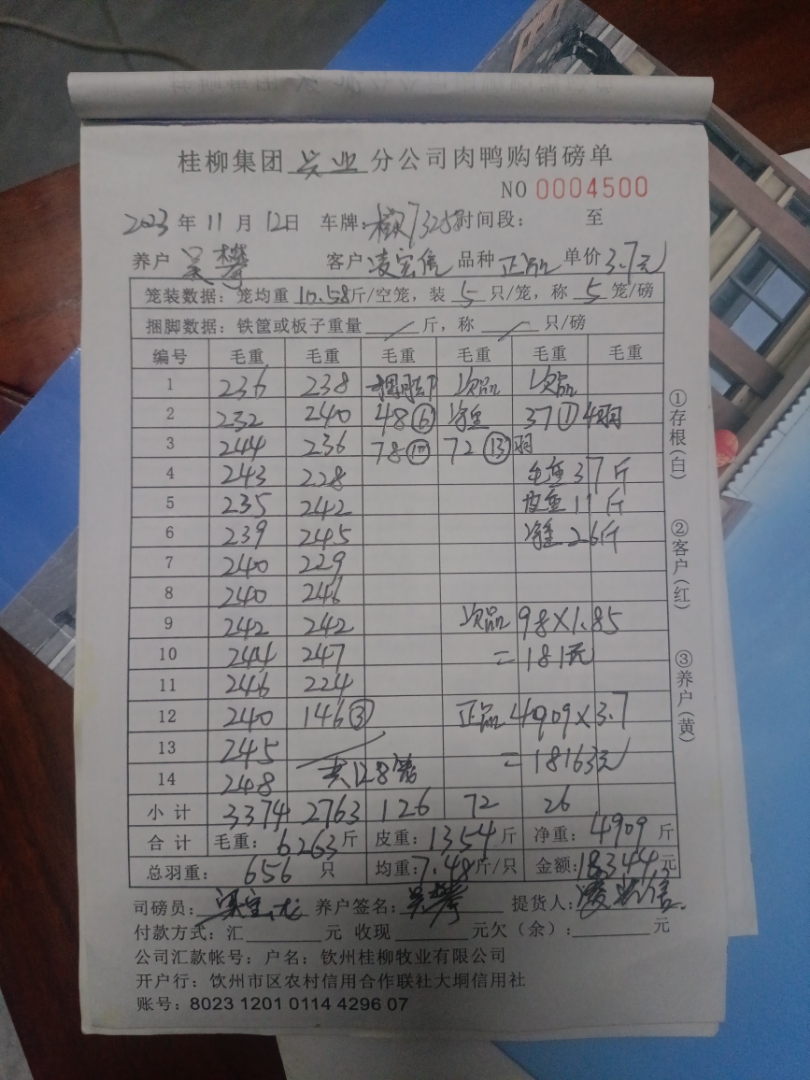 桂柳集团 兴业 分公司肉鸭购销磅单
NO 0004500
2023 年 11 月 12日 车牌: 时间段: 至
养户 吴攀 客户 凌宝信 品种 正品 单价 3.7元
笼装数据: 笼均重 10.58斤/空笼, 装 5 只/笼, 称 5 笼/磅
捆脚数据: 铁筐或板子重量 / 斤, 称 / 只/磅
编号 毛重 毛重 毛重 毛重 毛重 毛重
1 236 238 捆脚 次品 次品
2 232 240 48⑥ 净重 37① 4羽
3 244 236 78⑩ 72⑬羽
4 243 228 毛重37斤
5 235 242 皮重11斤
6 239 245 净重26斤
7 240 229
8 240 246
9 242 242 次品 98×1.85
10 244 247 =181元
11 246 224
12 240 146③ 正品 4909×3.7
13 245 =18163元
14 248 共128笼
小计 3374 2763 126 72 26
合计 毛重: 6263斤 皮重: 1354斤 净重: 4909斤
总羽重: 656 只 均重: 7.48斤/只 金额: 18344元
司磅员: 养户签名: 吴攀 提货人: 凌宝信
付款方式: 汇 元 收现 元欠(余): 元
公司汇款帐号: 户名: 钦州桂柳牧业有限公司
开户行: 钦州市区农村信用合作联社大垌信用社
账号: 8023 1201 0114 4296 07
①存根(白)
②客户(红)
③养户(黄)